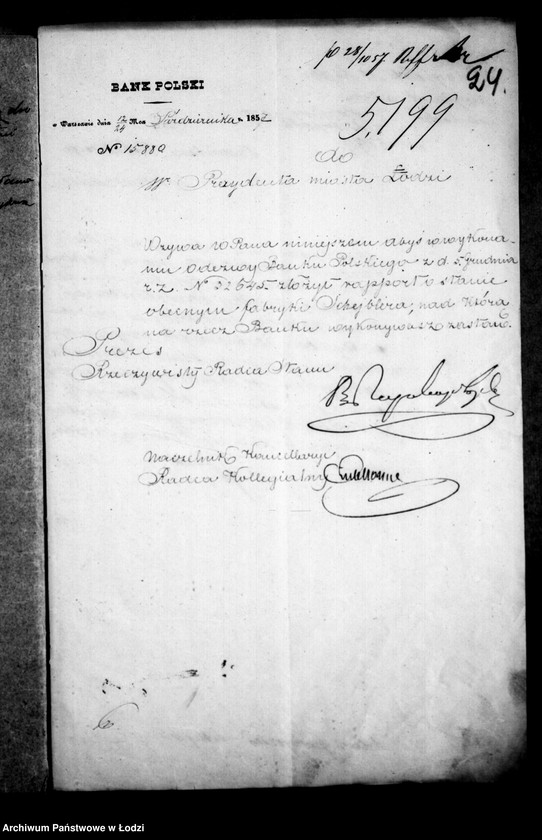 24.
BANK POLSKI
w Warszawie dnia 12/24 Mca Października r. 1857
5,199
N° 15880
do
Wo Prezydenta miasta Łodzi
Wzywa W Pana niniejszem abyś w wykona-
niu odezwy Banku Polskiego z d. 5 Grudnia
r.z. N° 32645 złożył rapport o stanie
obecnym fabryki Schejblera, nad którą
na rzecz Banku wykonywasz zastaw.
Prezes
Rzeczywisty Radca Stanu
Naczelnik Kancellaryi
Radca Kollegialny
Archiwum Państwowe w Łodzi